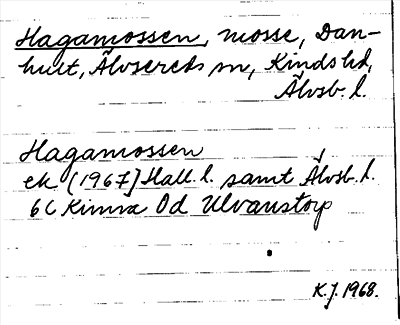 Hagamossen, mosse, Dan-
hult, Älvsereds sn, Kinds hd,
Älvsb. l.
Hagamossen
ek (1967) Hall. l. samt Älvsb. l.
6C Kinna Od Ulvanstorp
K.J. 1968.